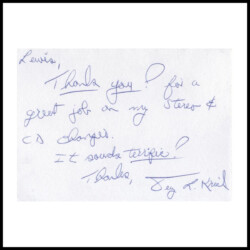 Lewis,
Thank you! for a
great job on my Stereo &
CD changer.
It sounds terrific!
Thanks,